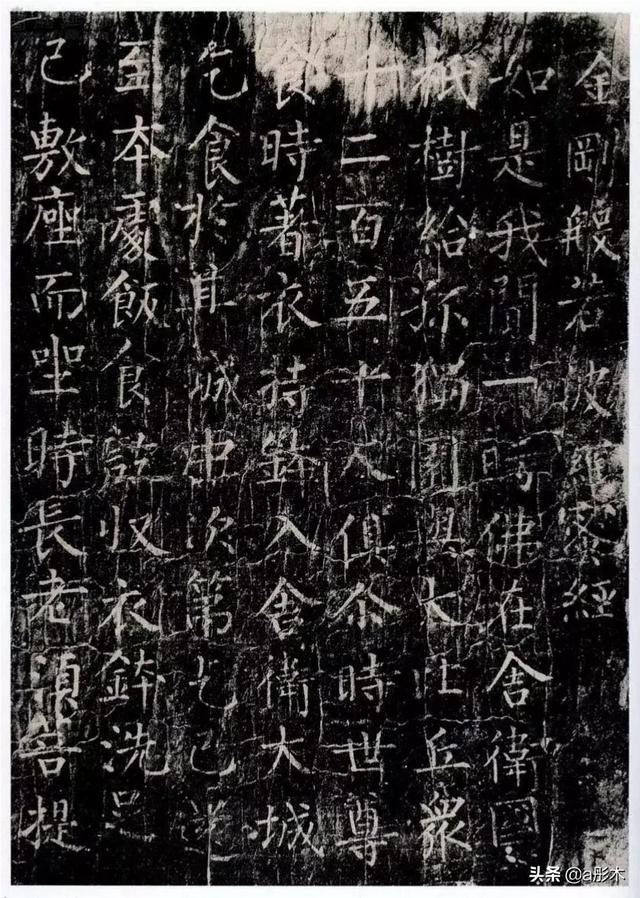 金剛般若波羅蜜經
如是我聞一時佛在舍衛國
祇樹給孤獨園與大比丘衆
千二百五十人俱尒時世尊
食時著衣持鉢入舍衛大城
乞食於其城中次第乞已還
至本處飯食訖收衣鉢洗足
已敷座而坐時長老須菩提
头条 @a彤木